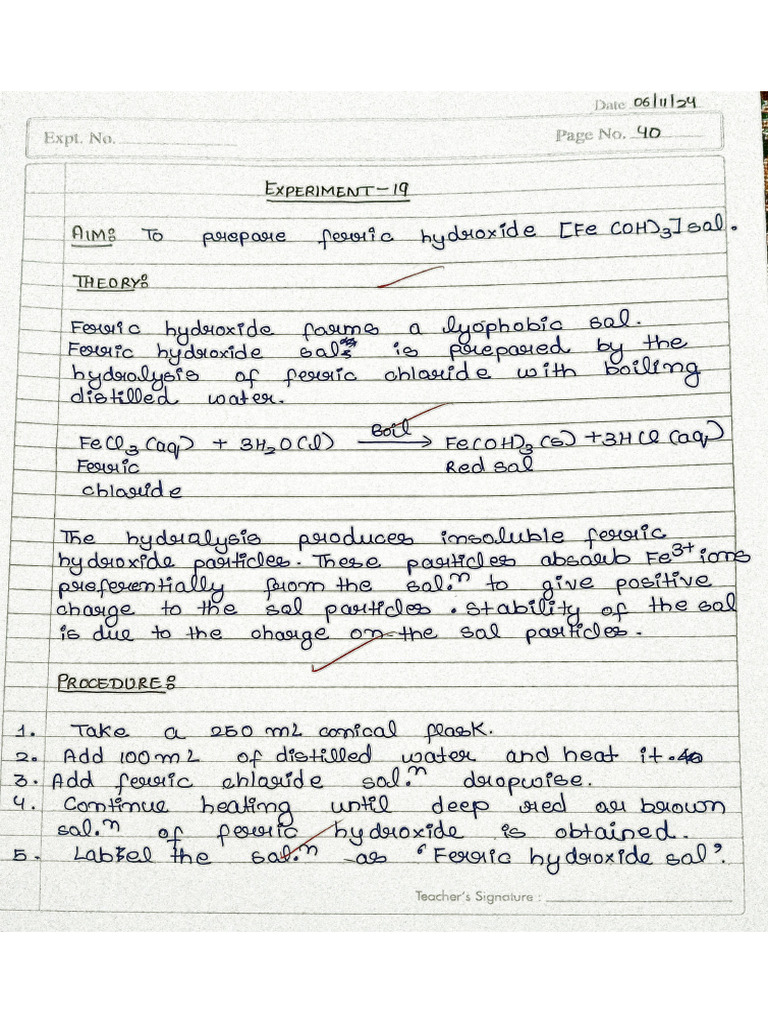 Date 06/11/24
Expt. No.
Page No. 40
EXPERIMENT-19
AIM: To prepare ferric hydroxide [Fe(OH)3] sol.
THEORY:
Ferric hydroxide forms a lyophobic sol.
Ferric hydroxide sol is prepared by the
hydrolysis of ferric chloride with boiling
distilled water.
FeCl3 (aq) + 3H2O (l) Boil → Fe(OH)3 (s) + 3HCl (aq)
Ferric Red sol
chloride
The hydrolysis produces insoluble ferric
hydroxide particles. These particles absorb Fe3+ ions
preferentially from the sol.n to give positive
charge to the sol particles. Stability of the sol
is due to the charge on the sol particles.
PROCEDURE:
1. Take a 250 mL conical flask.
2. Add 100 mL of distilled water and heat it.
3. Add ferric chloride sol.n dropwise.
4. Continue heating until deep red or brown
sol.n of ferric hydroxide is obtained.
5. Label the sol.n as 'Ferric hydroxide sol'.
Teacher's Signature :